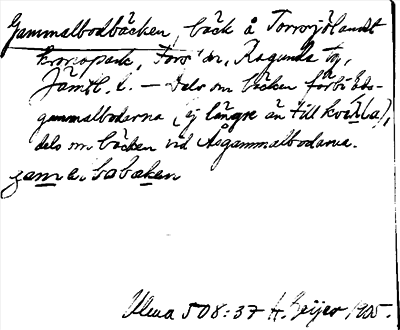 Gammalbodbäcken, bäck å Torresjölandets
kronopark, Fors sn, Ragunda tg,
Jämtl. l. — Dels om bäcken förbi Ås-
gammalbodarna (ej längre än till kvarna),
dels om bäcken vid Åsgammalbodarna.
gama, bobäken
Ulma 508:37 H. Geijer, 1905.